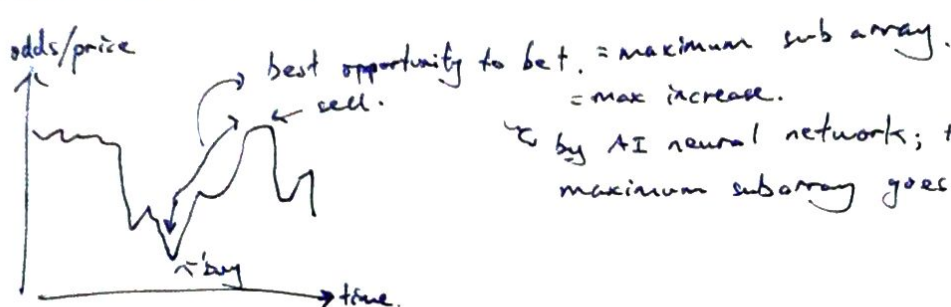 odds/price
best opportunity to bet. = maximum sub array.
= max increase.
sell.
by AI neural network;
maximum subarray goes
buy
time.